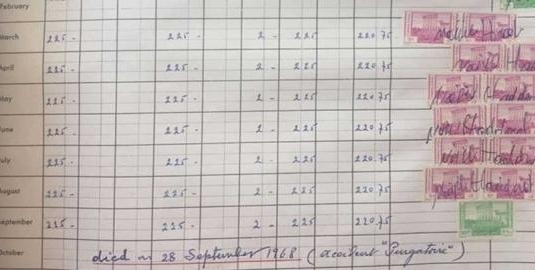 February
March 225 - 225 - 2 - 225 220.75
April 225 - 225 - 2 - 225 220.75
May 225 - 225 - 2 - 225 220.75
June 225 - 225 - 2 - 225 220.75
July 225 - 225 - 2 - 225 220.75
August 225 - 225 - 2 - 225 220.75
September 225 - 225 - 2 - 225 220.75
October
died on 28 September 1968 (accident "Purgatoire")